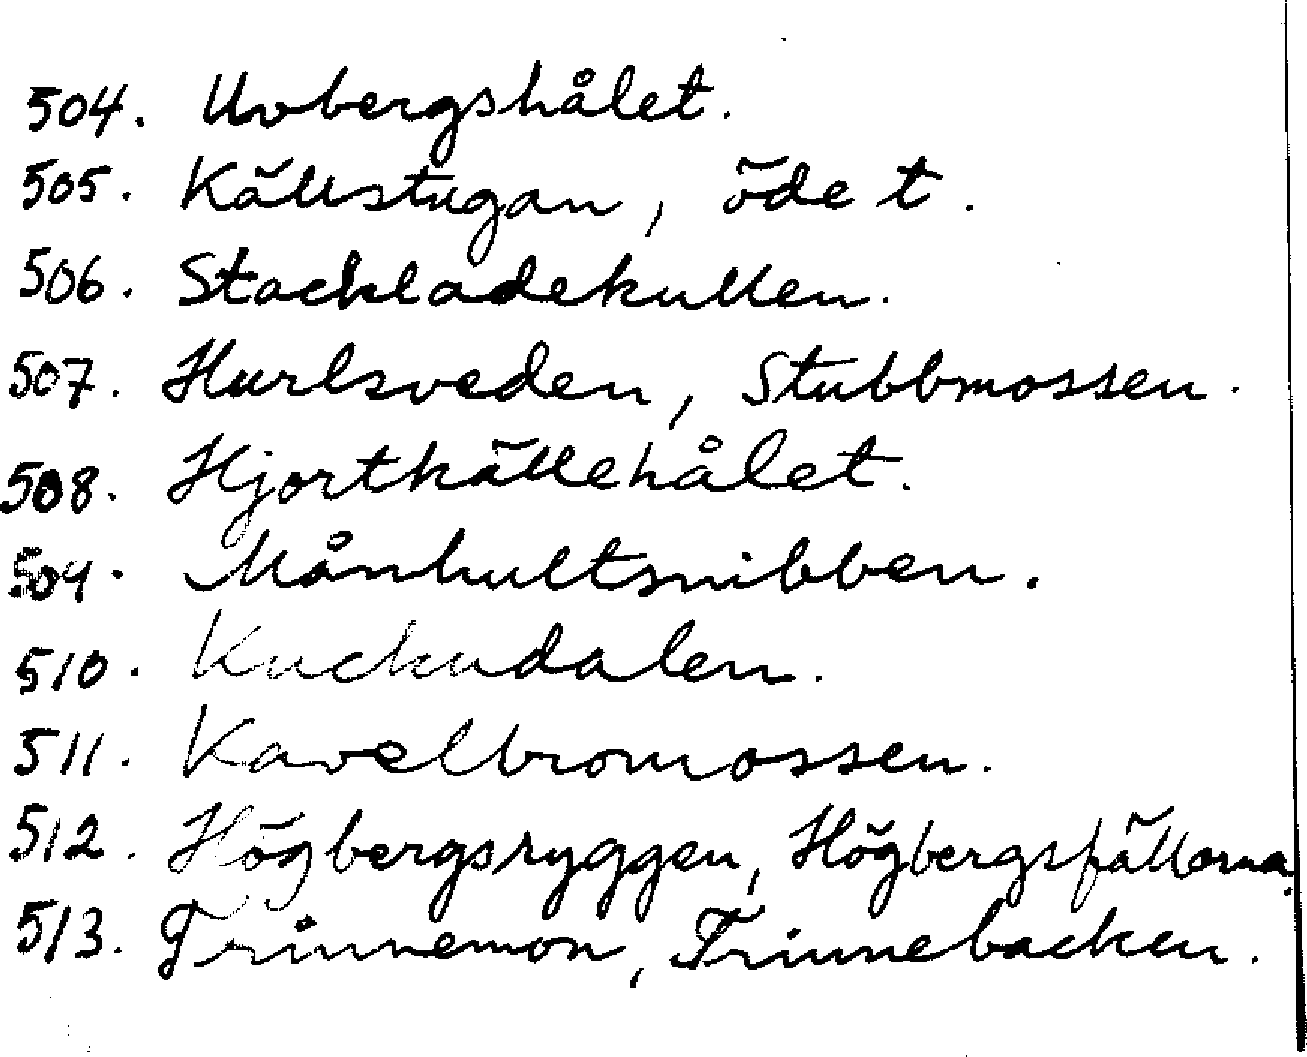 504. Uvbergshålet.
505. Källstugan, öde t.
506. Stackladekullen.
507. Hurlsveden, Stubbmossen.
508. Hjortkällehålet.
509. Månhultsnibben.
510. Kuckudalen.
511. Kavelbromossen.
512. Högbergsryggen, Högbergsfällorna.
513. Trinnemon, Trinnebacken.